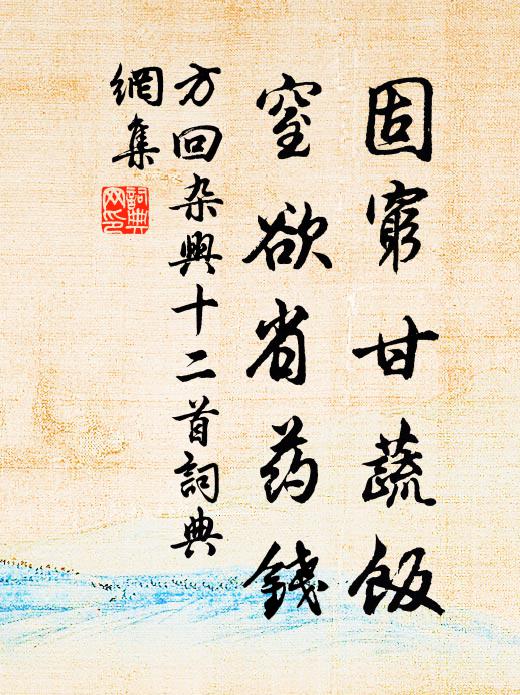 固窮甘蔬飯
窒欲省药錢
方回杂興十二首詞典
網集
詞典
网印